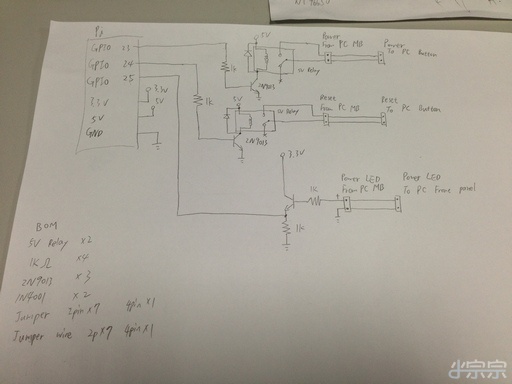 Pi
GPIO 23
GPIO 24
GPIO 25
3.3V
5V
GND
3.3V
5V
5V
1k
5V Relay
2N9013
Power
From PC MB
Power
To PC Button
1k
5V
5V Relay
2N9013
Reset
From PC MB
Reset
To PC Button
3.3V
1K
1K
Power LED
From PC MB
Power LED
To PC Front panel
BOM
5V Relay x2
1KΩ x4
2N9013 x3
1N4001 x2
Jumper 2pin x7 4pin x1
Jumper wire 2p x7 4pin x1
小宗宗